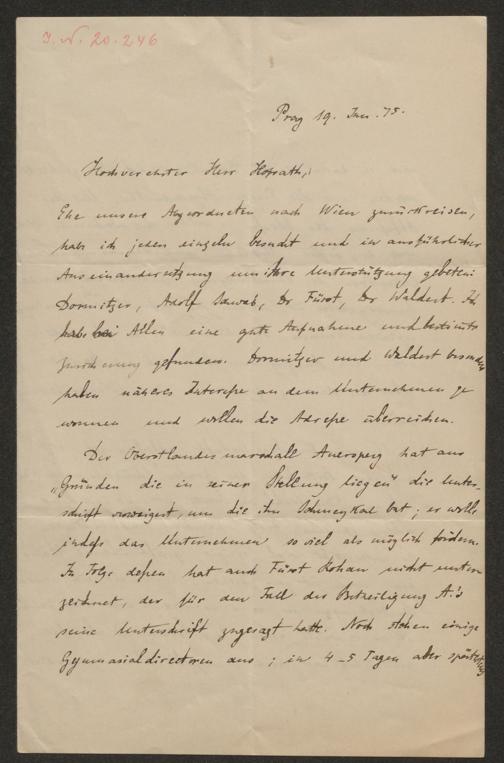 J. N. 20.246
Prag 19. Jan. 75.
Hochverehrter Herr Hofrath,
Ehe unsere Abgeordneten nach Wien zurückreisen,
habe ich jeden einzeln besucht und in ausführlicher
Auseinandersetzung um ihre Unterstützung gebeten:
Dormitzer, Adolf Schwab, Dr Fürst, Dr Waldert. Ich
habe bei Allen eine gute Aufnahme und bestimmte
Zusicherung gefunden. Dormitzer und Waldert besonders
haben näheres Interesse an dem Unternehmen ge
wonnen und wollen die Adresse überreichen.
Der Oberstlandesmarschall Auersperg hat aus
„Gründen die in seiner Stellung liegen" die Unter-
schrift verweigert, um die ihn Schmeykal bat; er wolle
indeß das Unternehmen so viel als möglich fördern.
In Folge deßen hat auch Fürst Rohan nicht unter
zeichnet, der für den Fall der Betheiligung A.'s
seine Unterschrift zugesagt hatte. Noch stehen einige
Gymnasialdirectoren aus; in 4-5 Tagen aber spätestens